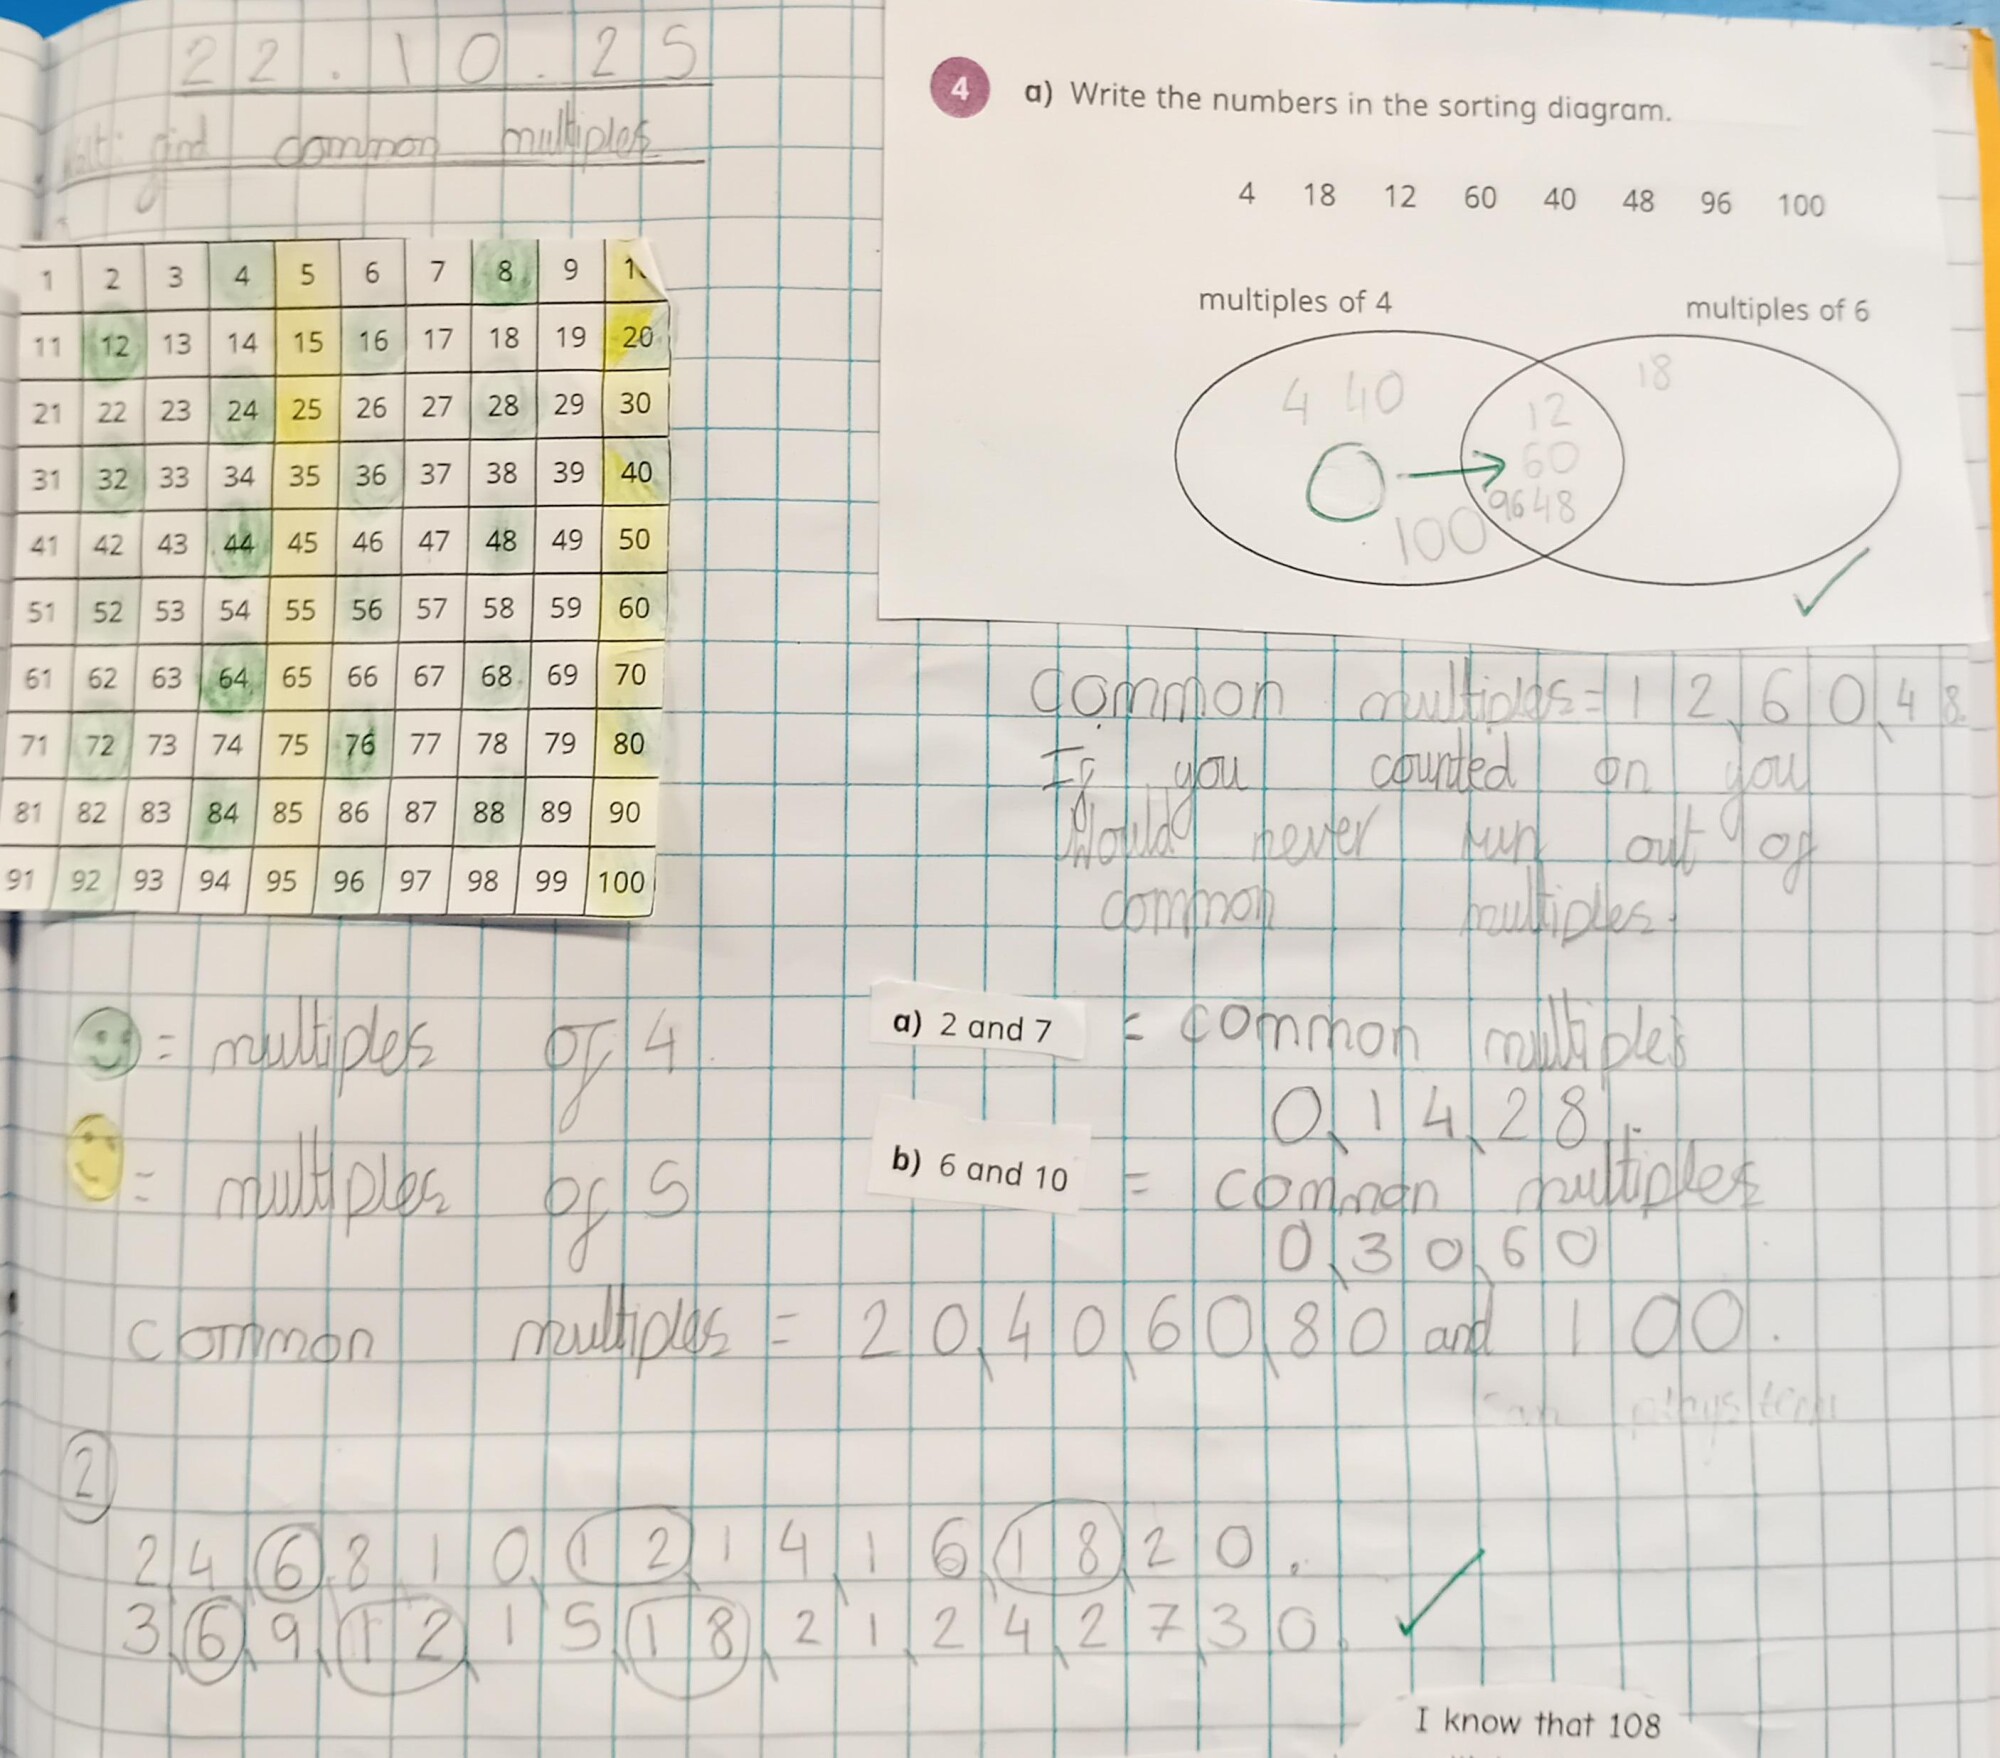 22.10.25
find common multiples
1 2 3 4 5 6 7 8 9
11 12 13 14 15 16 17 18 19 20
21 22 23 24 25 26 27 28 29 30
31 32 33 34 35 36 37 38 39 40
41 42 43 44 45 46 47 48 49 50
51 52 53 54 55 56 57 58 59 60
61 62 63 64 65 66 67 68 69 70
71 72 73 74 75 76 77 78 79 80
81 82 83 84 85 86 87 88 89 90
91 92 93 94 95 96 97 98 99 100
= multiples of 4
= multiples of 5
4 a) Write the numbers in the sorting diagram.
4 18 12 60 40 48 96 100
multiples of 4
multiples of 6
4 40
12
18
60
96 48
100
common multiples = 12, 60, 48.
If you counted on you
Would never run out of
common multiples.
a) 2 and 7 = common multiples
0, 14, 28.
b) 6 and 10 = common multiples
0, 30, 60
common multiples = 20, 40, 60, 80 and 100.
2
2, 4, 6, 8, 10, 12, 14, 16, 18, 20.
3, 6, 9, 12, 15, 18, 21, 24, 27, 30.
I know that 108